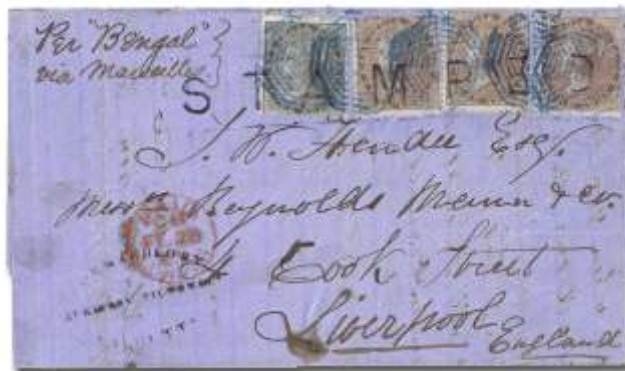 Per "Bengal"
via Marseilles
STAMPED
J. W. Hendee Esq.
Messrs Reynolds Mann & co.
4 Cook Street
Liverpool
England